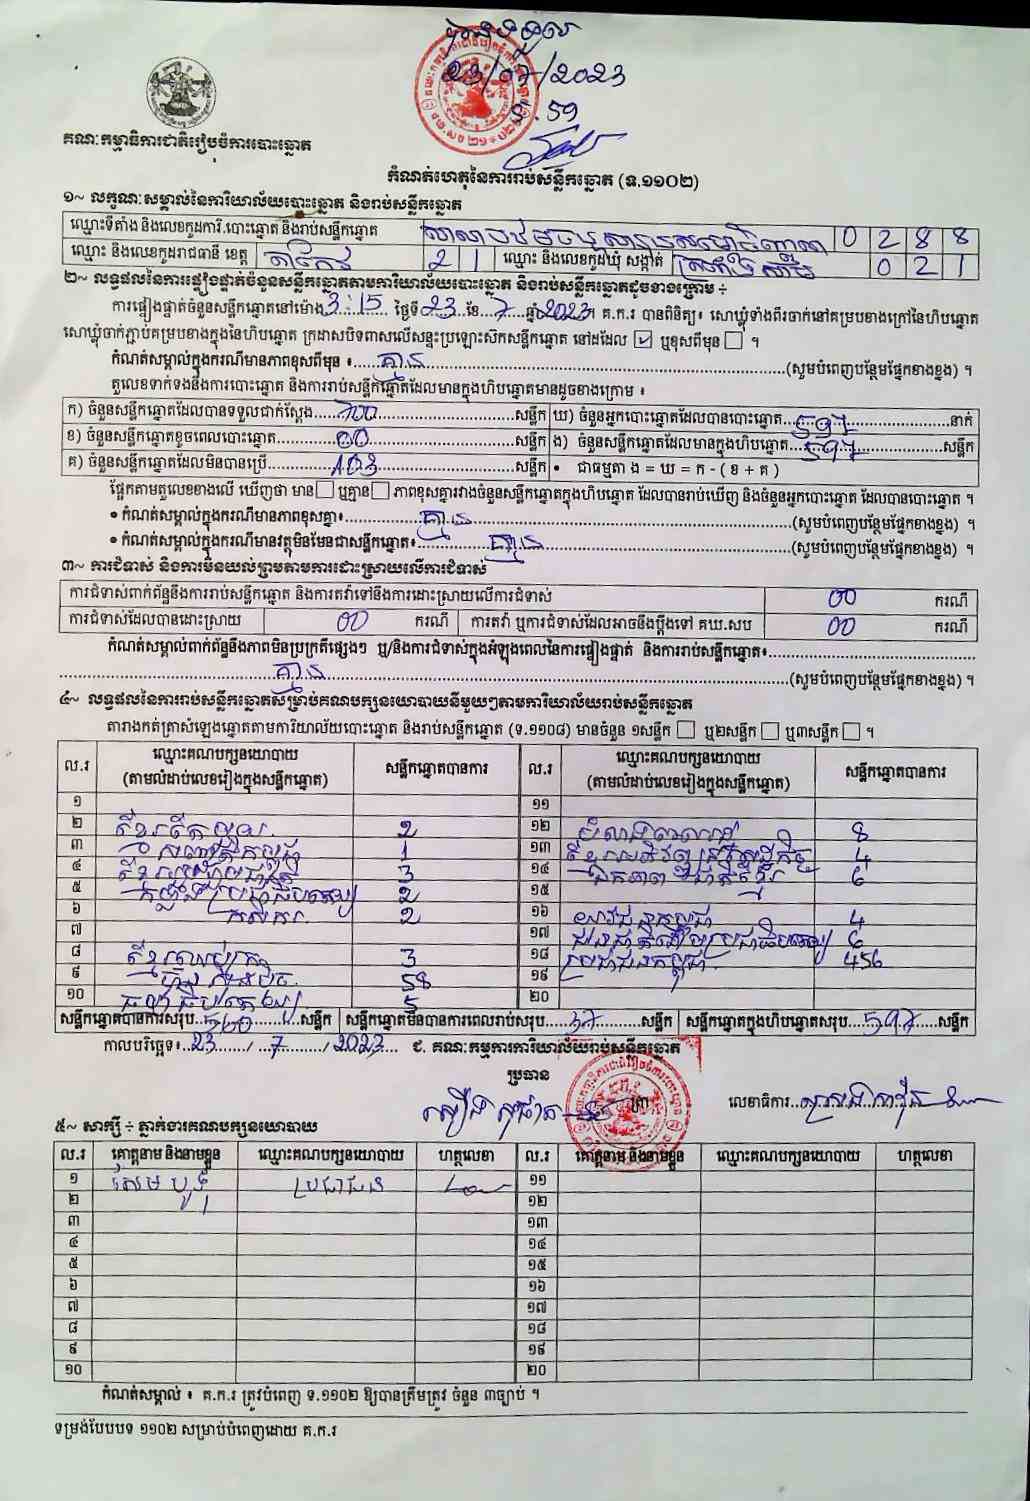 បានទទួល
23/07/2023
ម.59
គណៈកម្មាធិការជាតិរៀបចំការបោះឆ្នោត
កំណត់ហេតុនៃការរាប់សន្លឹកឆ្នោត (ទ.១១០២)
១~ លក្ខណៈសម្គាល់នៃការិយាល័យបោះឆ្នោត និងរាប់សន្លឹកឆ្នោត
ឈ្មោះទីតាំង និងលេខកូដការិ.បោះឆ្នោត និងរាប់សន្លឹកឆ្នោត 0 2 8 8
ឈ្មោះ និងលេខកូដរាជធានី ខេត្ត តាកែវ 2 1 ឈ្មោះ និងលេខកូដឃុំ សង្កាត់ 0 2 1
២~ លទ្ធផលនៃការផ្ទៀងផ្ទាត់ចំនួនសន្លឹកឆ្នោតតាមការិយាល័យបោះឆ្នោត និងរាប់សន្លឹកឆ្នោតដូចខាងក្រោម ÷
ការផ្ទៀងផ្ទាត់ចំនួនសន្លឹកឆ្នោតនៅម៉ោង 3:15 ថ្ងៃទី 23 ខែ 7 ឆ្នាំ 2023។ គ.ក.រ បានពិនិត្យ៖ សោឃ្លុំទាំងពីរចាក់នៅគម្របខាងក្រៅនៃហិបឆ្នោត
សោឃ្លុំចាក់ភ្ជាប់គម្របខាងក្នុងនៃហិបឆ្នោត ក្រដាសបិទពាសលើសន្ទះប្រឡោះស៊កសន្លឹកឆ្នោត នៅដដែល ☑ ឬខុសពីមុន ☐ ។
កំណត់សម្គាល់ក្នុងករណីមានភាពខុសពីមុន ៖ គ្មាន (សូមបំពេញបន្ថែមផ្នែកខាងខ្នង) ។
តួលេខទាក់ទងនឹងការបោះឆ្នោត និងការរាប់សន្លឹកឆ្នោតដែលមានក្នុងហិបឆ្នោតមានដូចខាងក្រោម ៖
ក) ចំនួនសន្លឹកឆ្នោតដែលបានទទួលជាក់ស្តែង 700 សន្លឹក ឃ) ចំនួនអ្នកបោះឆ្នោតដែលបានបោះឆ្នោត 597 នាក់
ខ) ចំនួនសន្លឹកឆ្នោតខូចពេលបោះឆ្នោត 00 សន្លឹក ង) ចំនួនសន្លឹកឆ្នោតដែលមានក្នុងហិបឆ្នោត 597 សន្លឹក
គ) ចំនួនសន្លឹកឆ្នោតដែលមិនបានប្រើ 103 សន្លឹក • ជាធម្មតា ង = ឃ = ក - ( ខ + គ )
ផ្អែកតាមតួលេខខាងលើ ឃើញថា មាន ☐ ឬគ្មាន ☐ ភាពខុសគ្នារវាងចំនួនសន្លឹកឆ្នោតក្នុងហិបឆ្នោត ដែលបានរាប់ឃើញ និងចំនួនអ្នកបោះឆ្នោត ដែលបានបោះឆ្នោត ។
• កំណត់សម្គាល់ក្នុងករណីមានភាពខុសគ្នា៖ គ្មាន (សូមបំពេញបន្ថែមផ្នែកខាងខ្នង) ។
• កំណត់សម្គាល់ក្នុងករណីមានវត្ថុមិនមែនជាសន្លឹកឆ្នោត៖ គ្មាន (សូមបំពេញបន្ថែមផ្នែកខាងខ្នង) ។
៣~ ការជំទាស់ និងការមិនយល់ព្រមតាមការដោះស្រាយលើការជំទាស់
ការជំទាស់ពាក់ព័ន្ធនឹងការរាប់សន្លឹកឆ្នោត និងការតវ៉ាទៅនឹងការដោះស្រាយលើការជំទាស់ 00 ករណី
ការជំទាស់ដែលបានដោះស្រាយ 00 ករណី ការតវ៉ា ឬការជំទាស់ដែលអាចនឹងប្តឹងទៅ គឃ.សប 00 ករណី
កំណត់សម្គាល់ពាក់ព័ន្ធនឹងភាពមិនប្រក្រតីផ្សេងៗ ឬ/និងការជំទាស់ក្នុងអំឡុងពេលនៃការផ្ទៀងផ្ទាត់ និងការរាប់សន្លឹកឆ្នោត៖
គ្មាន (សូមបំពេញបន្ថែមផ្នែកខាងខ្នង) ។
៤~ លទ្ធផលនៃការរាប់សន្លឹកឆ្នោតសម្រាប់គណបក្សនយោបាយនីមួយៗតាមការិយាល័យរាប់សន្លឹកឆ្នោត
តារាងកត់ត្រាសំឡេងឆ្នោតតាមការិយាល័យបោះឆ្នោត និងរាប់សន្លឹកឆ្នោត (ទ.១១០៨) មានចំនួន ១សន្លឹក ☐ ឬ២សន្លឹក ☐ ឬ៣សន្លឹក ☐ ។
ល.រ ឈ្មោះគណបក្សនយោបាយ (តាមលំដាប់លេខរៀងក្នុងសន្លឹកឆ្នោត) សន្លឹកឆ្នោតបានការ ល.រ ឈ្មោះគណបក្សនយោបាយ (តាមលំដាប់លេខរៀងក្នុងសន្លឹកឆ្នោត) សន្លឹកឆ្នោតបានការ
១ ១១
២ 2 ១២ 8
៣ សញ្ជាតិកម្ពុជា 1 ១៣ 4
៤ 3 ១៤ ឯកភាពជាតិខ្មែរ 6
៥ កម្លាំងប្រជាធិបតេយ្យ 2 ១៥
៦ កសិករ 2 ១៦ យុវជនកម្ពុជា 4
៧ ១៧ 6
៨ 3 ១៨ ប្រជាជនកម្ពុជា 456
៩ ហ៊្វុនស៊ិនប៉ិច 58 ១៩
១០ ធម្មាធិបតេយ្យ 5 ២០
សន្លឹកឆ្នោតបានការសរុប 560 សន្លឹក សន្លឹកឆ្នោតមិនបានការពេលរាប់សរុប 37 សន្លឹក សន្លឹកឆ្នោតក្នុងហិបឆ្នោតសរុប 597 សន្លឹក
កាលបរិច្ឆេទ៖ 23 / 7 / 2023 ជ. គណៈកម្មការការិយាល័យរាប់សន្លឹកឆ្នោត
ប្រធាន
លេខាធិការ
៥~ សាក្សី ÷ ភ្នាក់ងារគណបក្សនយោបាយ
ល.រ គោត្តនាម និងនាមខ្លួន ឈ្មោះគណបក្សនយោបាយ ហត្ថលេខា ល.រ គោត្តនាម និងនាមខ្លួន ឈ្មោះគណបក្សនយោបាយ ហត្ថលេខា
១ ប្រជាជន ១១
២ ១២
៣ ១៣
៤ ១៤
៥ ១៥
៦ ១៦
៧ ១៧
៨ ១៨
៩ ១៩
១០ ២០
កំណត់សម្គាល់ ៖ គ.ក.រ ត្រូវបំពេញ ទ.១១០២ ឱ្យបានត្រឹមត្រូវ ចំនួន ៣ច្បាប់ ។
ទម្រង់បែបបទ ១១០២ សម្រាប់បំពេញដោយ គ.ក.រ